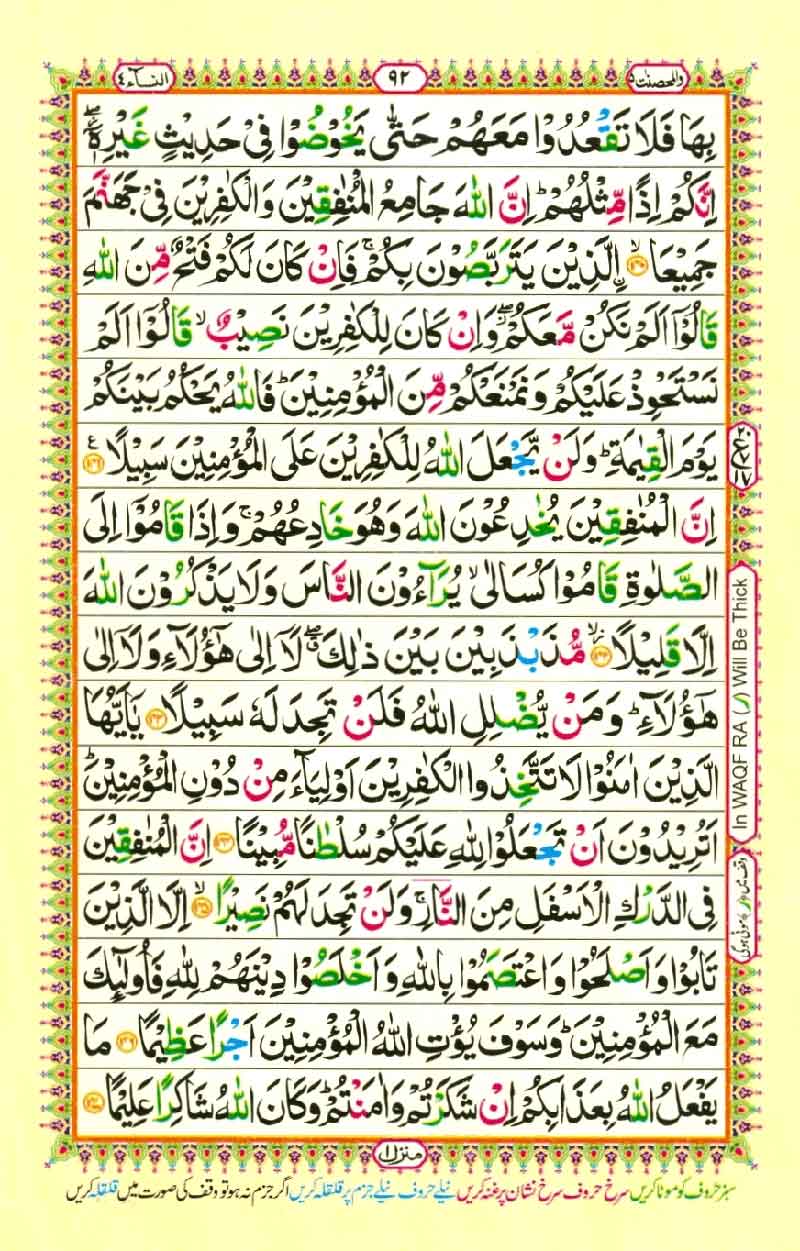 والمحصنت ۵
۹۲
النسآء ۴
بِهَا فَلَا تَقْعُدُوْا مَعَهُمْ حَتّٰى يَخُوْضُوْا فِىْ حَدِيْثٍ غَيْرِهٖٓ ۖ
اِنَّكُمْ اِذًا مِّثْلُهُمْ ؕ اِنَّ اللّٰهَ جَامِعُ الْمُنٰفِقِيْنَ وَالْكٰفِرِيْنَ فِىْ جَهَنَّمَ
جَمِيْعَا ۙ‏﴿۱۴۰﴾ اۨلَّذِيْنَ يَتَرَبَّصُوْنَ بِكُمْ ۚ فَاِنْ كَانَ لَكُمْ فَتْحٌ مِّنَ اللّٰهِ
قَالُوْۤا اَلَمْ نَكُنْ مَّعَكُمْ ۖ وَاِنْ كَانَ لِلْكٰفِرِيْنَ نَصِيْبٌ ۙ قَالُوْۤا اَلَمْ
نَسْتَحْوِذْ عَلَيْكُمْ وَنَمْنَعْكُمْ مِّنَ الْمُؤْمِنِيْنَ ؕ فَاللّٰهُ يَحْكُمُ بَيْنَكُمْ
يَوْمَ الْقِيٰمَةِ ؕ وَلَنْ يَّجْعَلَ اللّٰهُ لِلْكٰفِرِيْنَ عَلَى الْمُؤْمِنِيْنَ سَبِيْلًا ﴿۱۴۱﴾ ع
اِنَّ الْمُنٰفِقِيْنَ يُخٰدِعُوْنَ اللّٰهَ وَهُوَ خَادِعُهُمْ ۚ وَاِذَا قَامُوْۤا اِلَى
الصَّلٰوةِ قَامُوْا كُسَالٰى ۙ يُرَآءُوْنَ النَّاسَ وَلَا يَذْكُرُوْنَ اللّٰهَ
اِلَّا قَلِيْلًا ۙ‏﴿۱۴۲﴾ مُّذَبْذَبِيْنَ بَيْنَ ذٰلِكَ ۖ لَاۤ اِلٰى هٰٓؤُلَآءِ وَلَاۤ اِلٰى
هٰٓؤُلَآءِ ؕ وَمَنْ يُّضْلِلِ اللّٰهُ فَلَنْ تَجِدَ لَهٗ سَبِيْلًا ﴿۱۴۳﴾ يٰۤاَيُّهَا
الَّذِيْنَ اٰمَنُوْا لَا تَتَّخِذُوا الْكٰفِرِيْنَ اَوْلِيَآءَ مِنْ دُوْنِ الْمُؤْمِنِيْنَ ؕ
اَتُرِيْدُوْنَ اَنْ تَجْعَلُوْا لِلّٰهِ عَلَيْكُمْ سُلْطٰنًا مُّبِيْنًا ﴿۱۴۴﴾ اِنَّ الْمُنٰفِقِيْنَ
فِى الدَّرْكِ الْاَسْفَلِ مِنَ النَّارِ ۚ وَلَنْ تَجِدَ لَهُمْ نَصِيْرًا ۙ‏﴿۱۴۵﴾ اِلَّا الَّذِيْنَ
تَابُوْا وَاَصْلَحُوْا وَاعْتَصَمُوْا بِاللّٰهِ وَاَخْلَصُوْا دِيْنَهُمْ لِلّٰهِ فَاُولٰٓئِكَ
مَعَ الْمُؤْمِنِيْنَ ؕ وَسَوْفَ يُؤْتِ اللّٰهُ الْمُؤْمِنِيْنَ اَجْرًا عَظِيْمًا ﴿۱۴۶﴾ مَا
يَفْعَلُ اللّٰهُ بِعَذَابِكُمْ اِنْ شَكَرْتُمْ وَاٰمَنْتُمْ ؕ وَكَانَ اللّٰهُ شَاكِرًا عَلِيْمًا ﴿۱۴۷﴾
In WAQF RA (ر) Will Be Thick
وقف میں (ر) موٹی ہوگی
منزل ۱
سبز حروف کو موٹا کریں سرخ حروف سرخ نشان پر غنہ کریں نیلے حروف نیلے جزم پر قلقلہ کریں اگر جزم نہ ہو تو وقف کی صورت میں قلقلہ کریں